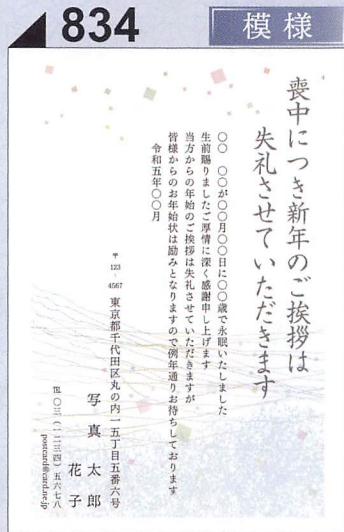 834
模様
喪中につき新年のご挨拶は
失礼させていただきます
〇〇 〇〇が〇〇月〇〇日に〇〇歳で永眠いたしました
生前賜りましたご厚情に深く感謝申し上げます
当方からの年始のご挨拶は失礼させていただきますが
皆様からのお年始状は励みとなりますので例年通りお待ちしております
令和五年〇〇月
〒123-4567 東京都千代田区丸の内一五丁目五番六号
写真太郎
花子
℡〇三(一二三四)五六七八
postcard@card.ne.jp